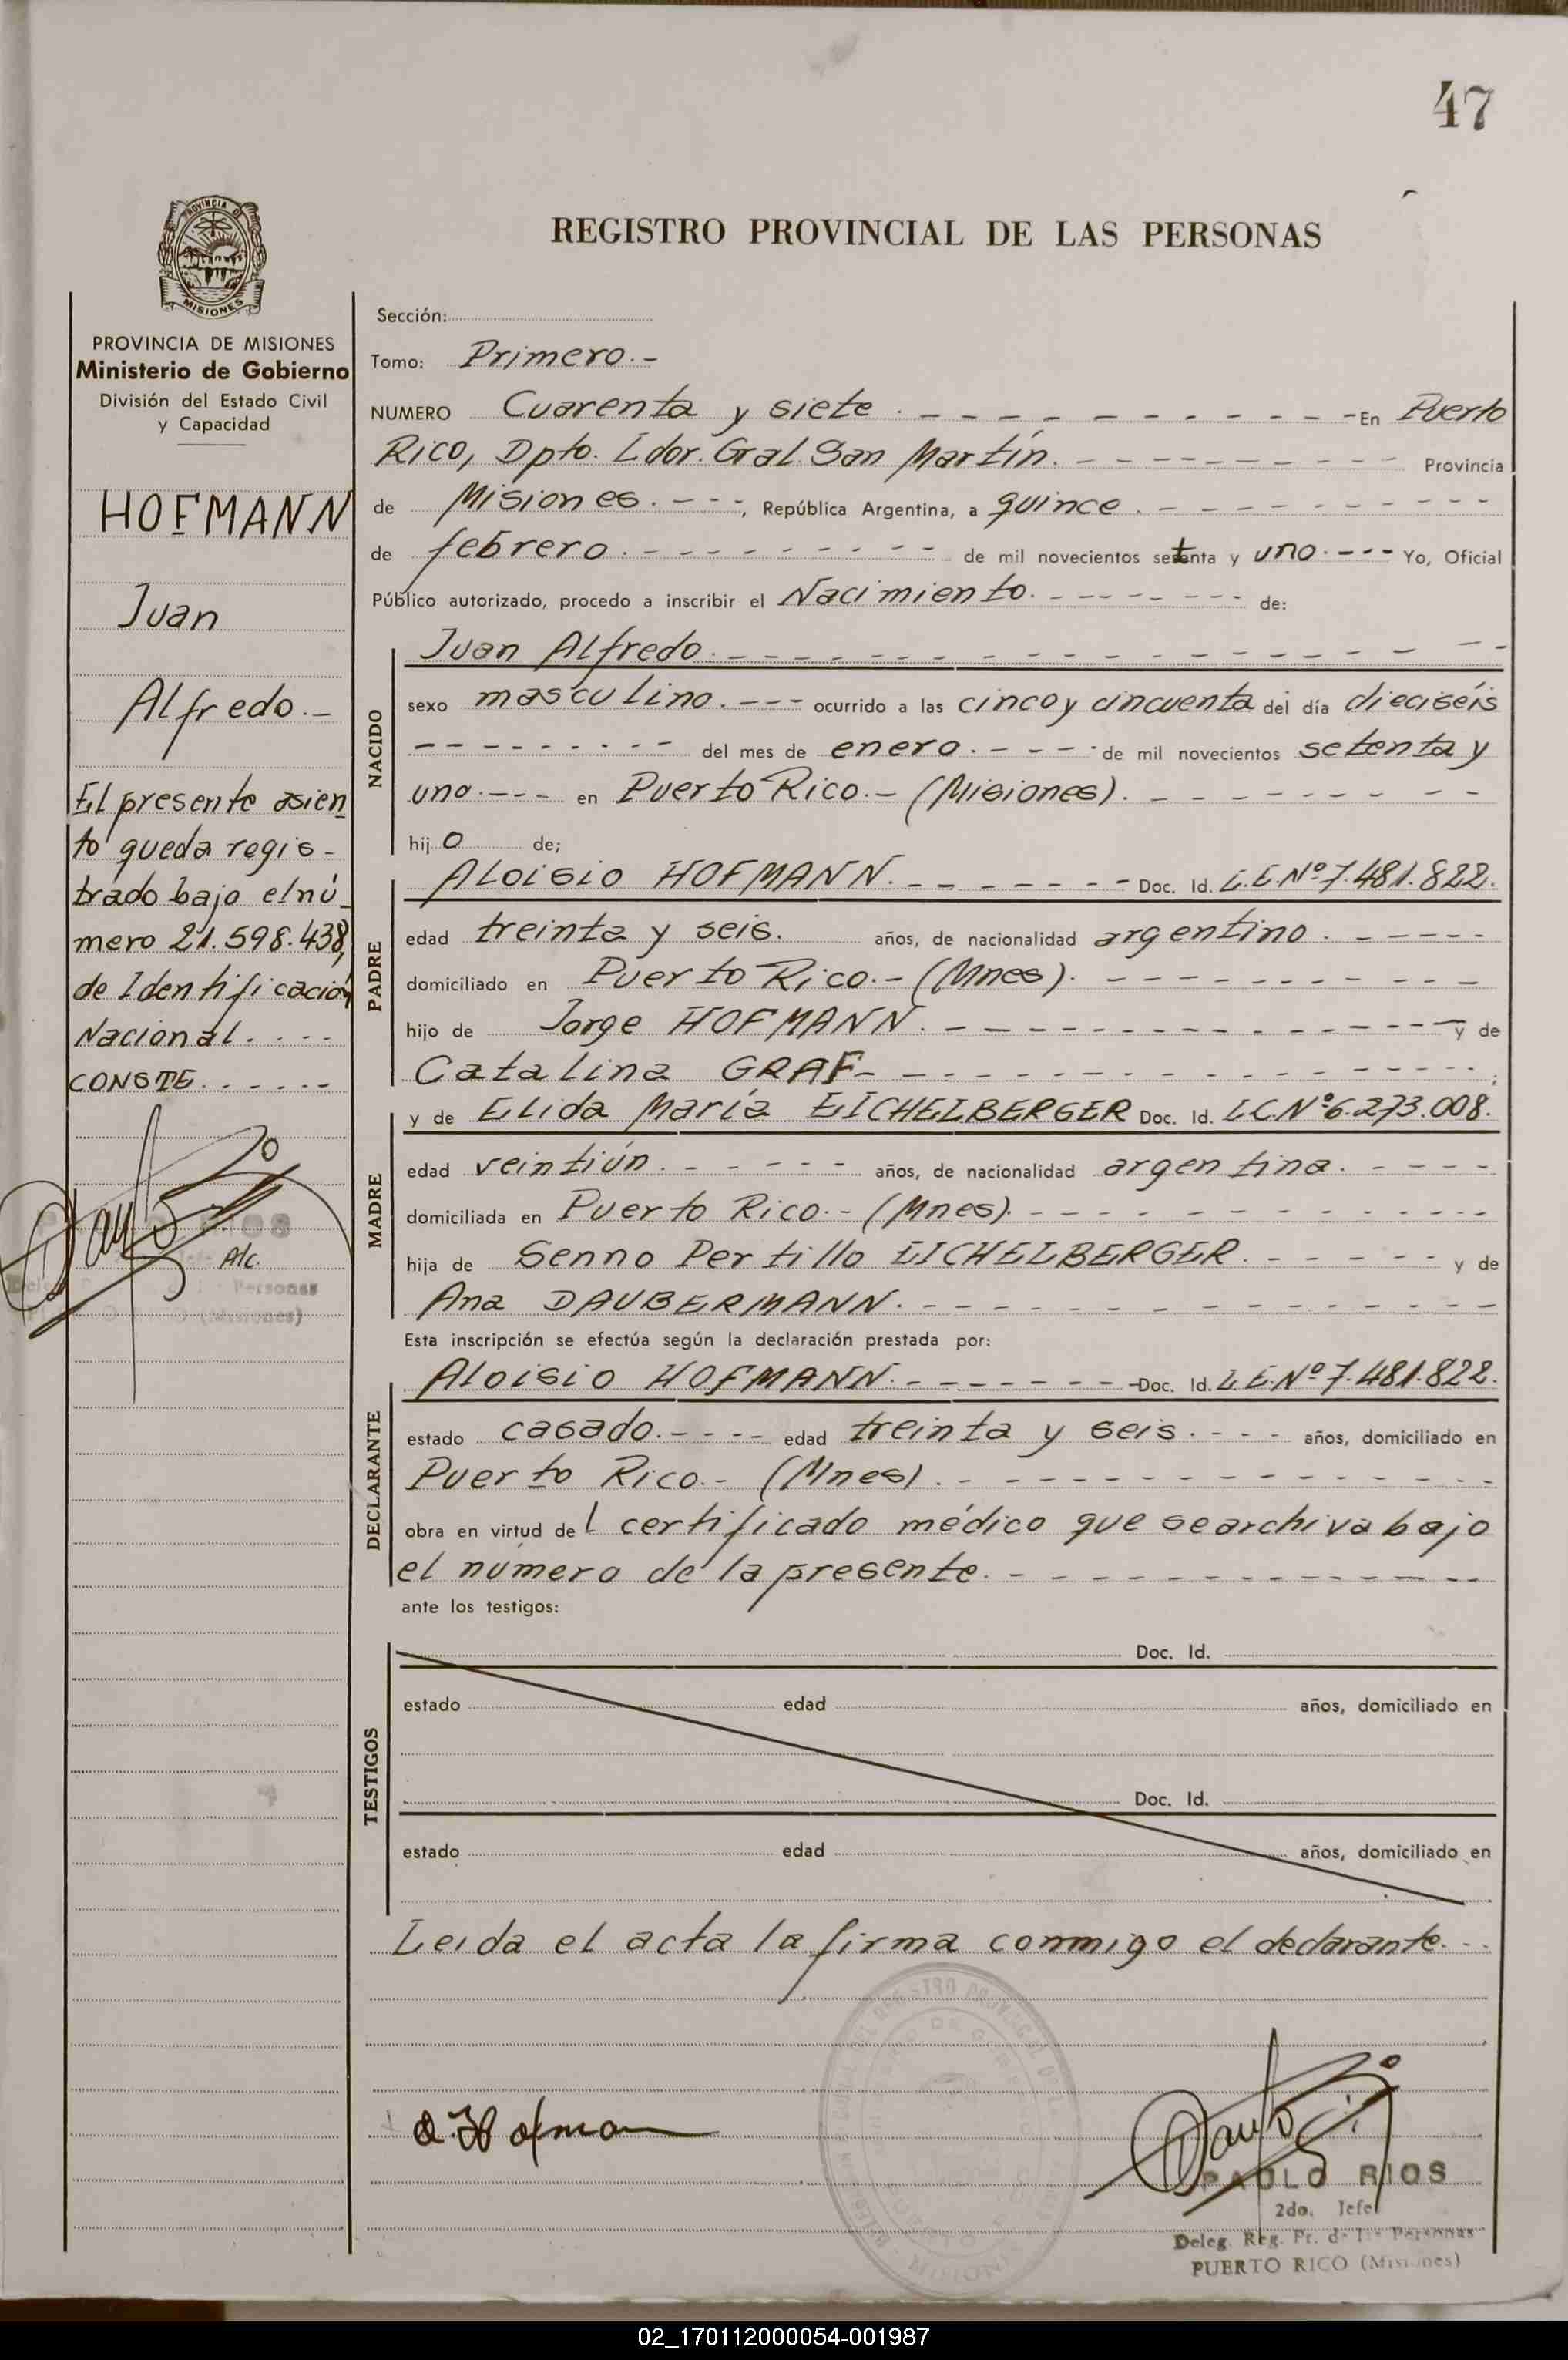 47
REGISTRO PROVINCIAL DE LAS PERSONAS
PROVINCIA DE MISIONES
PROVINCIA DE MISIONES
Ministerio de Gobierno
División del Estado Civil
y Capacidad
HOFMANN
Juan
Alfredo.-
El presente asien
to queda regis-
trado bajo el nú-
mero 21.598.438,
de Identificación
Nacional. - - -
CONSTE. - - - - -
Alc.
Personas
(Misiones)
Sección:
Tomo: Primero.-
NUMERO Cuarenta y siete. - - - - - - - - - - En Puerto
Rico, Dpto. Ldor. Gral. San Martín. - - - - - - - - - Provincia
de Misiones. - - -, República Argentina, a quince. - - - - - - - - -
de febrero. - - - - - - - - - de mil novecientos setenta y uno. - - - Yo, Oficial
Público autorizado, procedo a inscribir el Nacimiento. - - - - - - - de:
NACIDO
Juan Alfredo. - - - - - - - - - - - - - - - -
sexo masculino. - - - ocurrido a las cinco y cincuenta del día dieciséis
- - - - - - - - - del mes de enero. - - - - de mil novecientos setenta y
uno. - - - en Puerto Rico.- (Misiones). - - - - - - - -
hijo de;
PADRE
Aloisio HOFMANN. - - - - - - - Doc. Id. L.E.Nº 7.481.822.
edad treinta y seis. años, de nacionalidad argentino. - - - - -
domiciliado en Puerto Rico.- (Mnes). - - - - - - - - -
hijo de Jorge HOFMANN. - - - - - - - - - - - - - y de
Catalina GRAF- - - - - - - - - - - - - - - - ;
MADRE
y de Elida María EICHELBERGER Doc. Id. L.C.Nº 6.273.008.
edad veintiún. - - - - - - años, de nacionalidad argentina. - - - -
domiciliada en Puerto Rico.- (Mnes). - - - - - - - - - - -
hija de Senno Pertillo EICHELBERGER. - - - - - y de
Ana DAUBERMANN. - - - - - - - - - - - - - -
Esta inscripción se efectúa según la declaración prestada por:
DECLARANTE
Aloisio HOFMANN. - - - - - - - Doc. Id. L.E.Nº 7.481.822.
estado casado. - - - - edad treinta y seis. - - - años, domiciliado en
Puerto Rico.- (Mnes). - - - - - - - - - - - - - -
obra en virtud del certificado médico que se archiva bajo
el número de la presente. - - - - - - - - - - - - -
ante los testigos:
TESTIGOS
Doc. Id.
estado edad años, domiciliado en
Doc. Id.
estado edad años, domiciliado en
Leida el acta la firma conmigo el declarante. - -
PAOLO RIOS
2do. Jefe
Deleg. Reg. Pr. de las Personas
PUERTO RICO (Misiones)
02_170112000054-001987